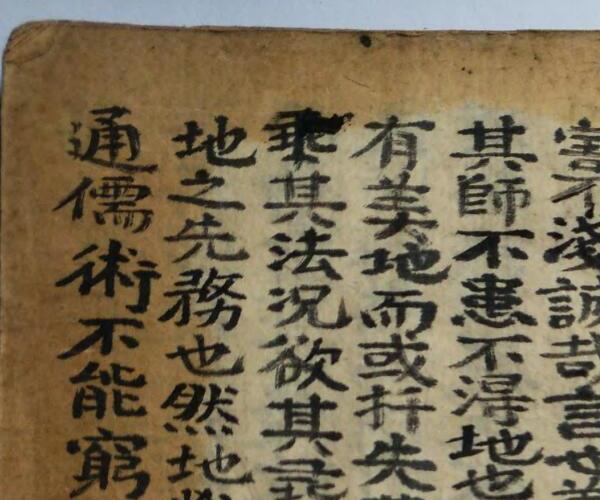 害不淺誠哉言也
其師不患不得地也
有美地而或扦失
乖其法況欲其尋
地之先務也然地
通儒術不能窮